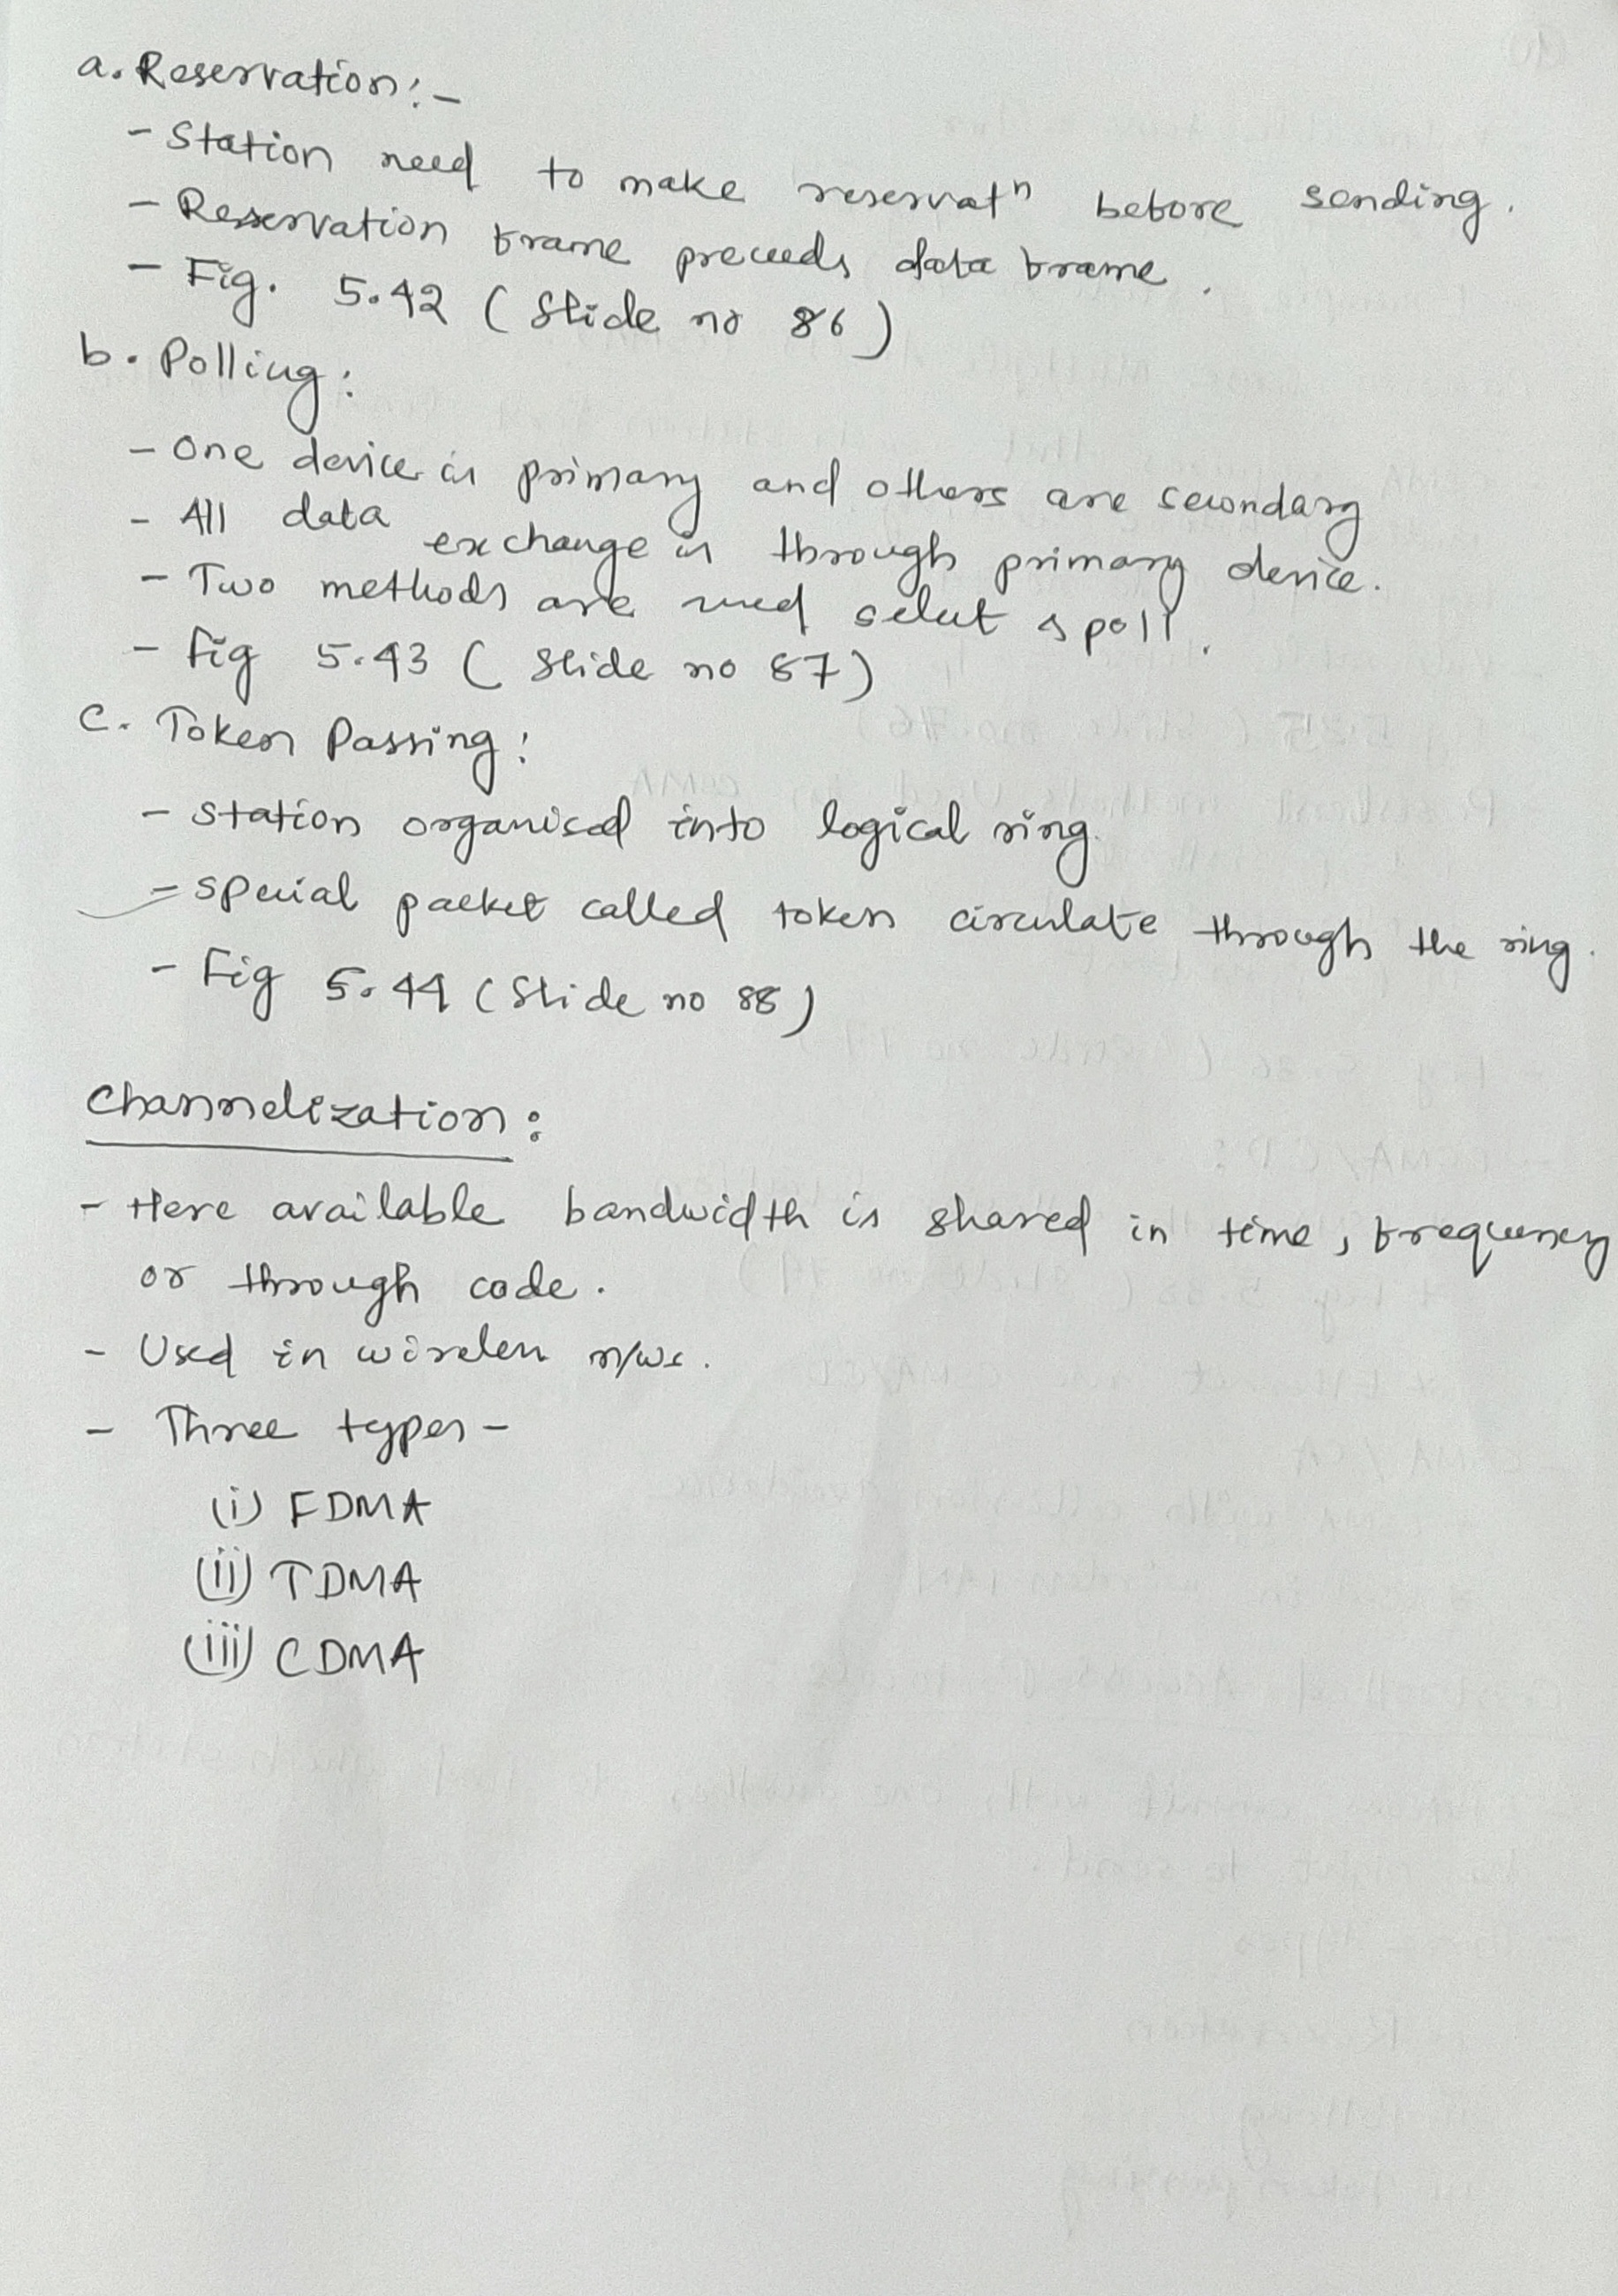 a. Reservation:-
- Station need to make reservatⁿ before sending.
- Reservation frame preceeds data frame.
- Fig. 5.42 (Slide no 86)
b. Polling:
- One device is primary and others are secondary
- All data exchange is through primary device.
- Two methods are used select & poll.
- Fig 5.43 (Slide no 87)
c. Token Passing:
- Station organised into logical ring.
- special packet called token circulate through the ring.
- Fig 5.44 (Slide no 88)
Channelization:
- Here available bandwidth is shared in time, frequency
or through code.
- Used in wireless n/ws.
- Three types -
(i) FDMA
(ii) TDMA
(iii) CDMA